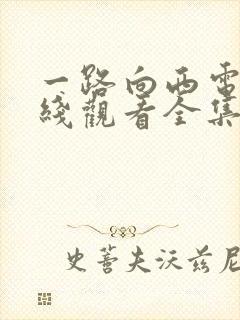 一路向西電
綫觀看全集
史蒂夫沃兹尼